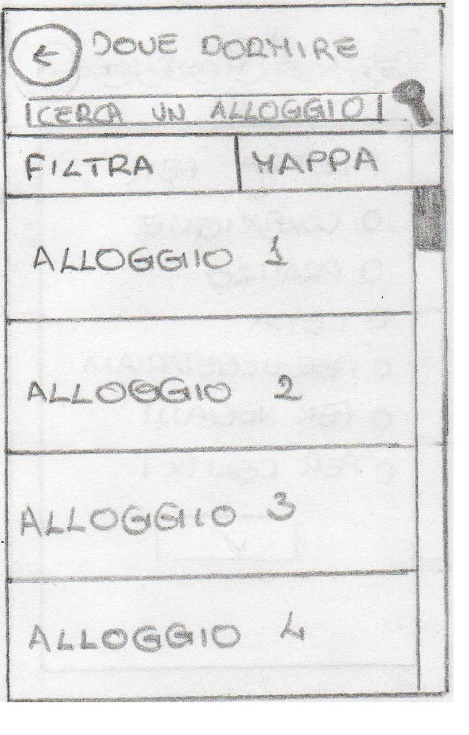 DOVE DORMIRE
CERCA UN ALLOGGIO
FILTRA MAPPA
ALLOGGIO 1
ALLOGGIO 2
ALLOGGIO 3
ALLOGGIO 4